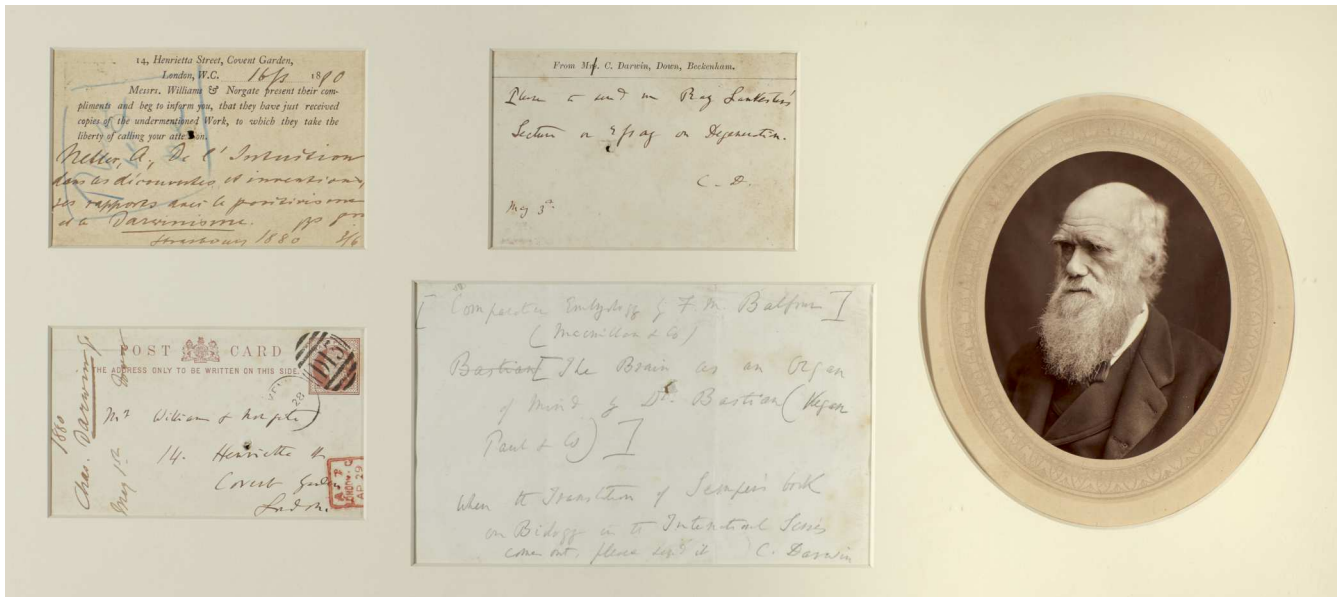 14, Henrietta Street, Covent Garden,
London, W.C. 1880
Messrs. Williams & Norgate present their com-
pliments and beg to inform you, that they have just received
copies of the undermentioned Work, to which they take the
liberty of calling your attention.
Netter, A., De l'Intuition
dans les découvertes et inventions,
ses rapports avec le positivisme
et le Darwinisme.
Strasbourg 1880 3/6
From Mr. C. Darwin, Down, Beckenham.
Please to send me Ray Lankester's
Lecture or Essay on Degeneration.
C. D.
May 3rd
POST CARD
THE ADDRESS ONLY TO BE WRITTEN ON THIS SIDE.
Williams & Norgate
14. Henrietta St
Covent Garden
London
1880
Chas. Darwin
May 1st Down
28
LONDON
AP 29
[Comparative Embryology by F. M. Balfour]
(Macmillan & Co)
Bastian [The Brain as an Organ
of Mind by Dr. Bastian (Kegan
Paul & Co)]
When the Translation of Semper's book
on Biology in the International Series
comes out, please send it C. Darwin